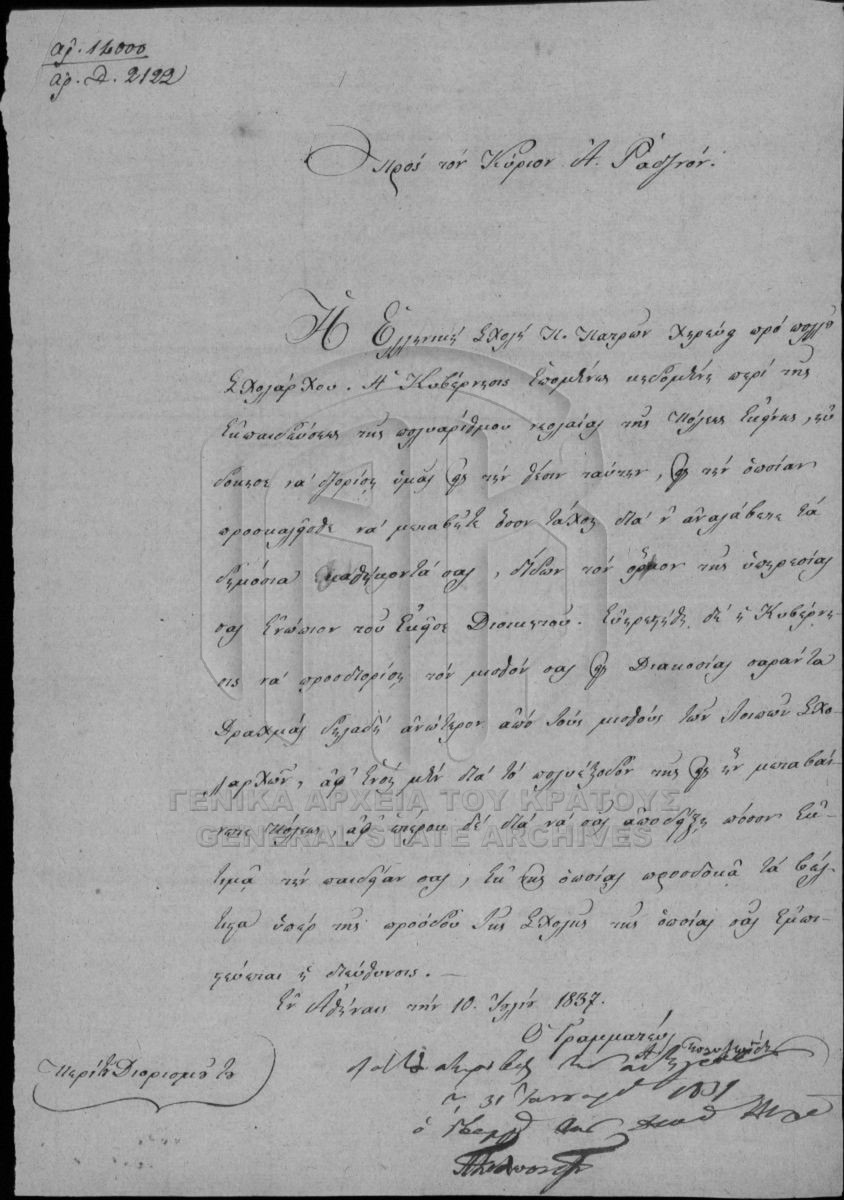 ἀρ. 14000
ἀρ. Δ. 2122
Πρός τόν Κύριον Α. Ράδινόν.
Ἡ Ἑλληνική Σχολή Π. Πατρῶν χηρεύει πρό πολλοῦ
Σχολάρχου. Ἡ Κυβέρνησις ἑπομένως κηδομένη περί τῆς
ἐκπαιδεύσεως τῆς πολυαρίθμου νεολαίας τῆς Πόλεως ἐκείνης, εὐ
δόκησε νά διορίσῃ ὑμᾶς εἰς τήν θέσιν ταύτην, εἰς τήν ὁποίαν
προσκαλεῖσθε νά μεταβῆτε ὅσον τάχος διά ν' ἀναλάβητε τά
δημόσια καθήκοντά σας, δίδων τόν ὅρκον τῆς ὑπηρεσίας
σας ἐνώπιον τοῦ ἐκεῖσε Διοικητοῦ. Εὐηρεστήθη δέ ἡ Κυβέρνη
σις νά προσδιορίσῃ τόν μισθόν σας εἰς Διακοσίας σαράντα
Δραχμάς δηλαδή ἀνώτερον ἀπό τούς μισθούς τῶν λοιπῶν Σχο-
λαρχῶν, ἀφ' ἑνός μέν διά τό πολυέξοδον τῆς εἰς ἥν μεταβαί
νετε πόλεως, ἀφ' ἑτέρου δέ διά νά σᾶς ἀποδείξῃ πόσον ἐκ-
τιμᾷ τήν παιδείαν σας, ἐκ τῆς ὁποίας προσδοκᾷ τά βέλ-
τιστα ὑπέρ τῆς προόδου τῆς Σχολῆς τῆς ὁποίας σᾶς ἐμπι-
στεύεται ἡ διεύθυνσις. —
Ἐν Ἀθήναις τήν 10. Ἰουλίου 1837.
Ὁ Γραμματεύς
Α. Πολυζωίδης
τ. 31 Ἰανουαρ
ὁ
Περί τοῦ Διορισμοῦ του
ΓΕΝΙΚΑ ΑΡΧΕΙΑ ΤΟΥ ΚΡΑΤΟΥΣ
GENERAL STATE ARCHIVES